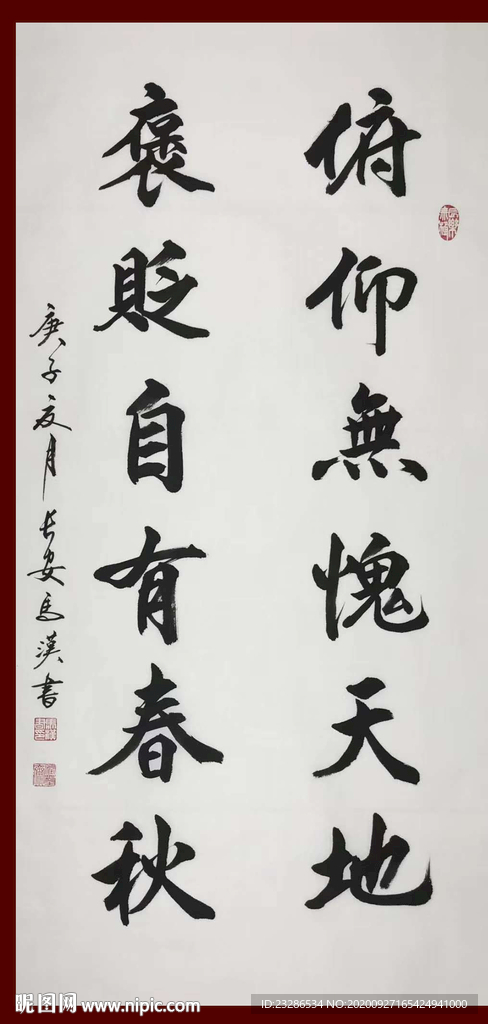 俯仰無愧天地
褒貶自有春秋
庚子夏月长安馬漢書
昵图网 www.nipic.com
ID:23286534 NO:20200927165424941000